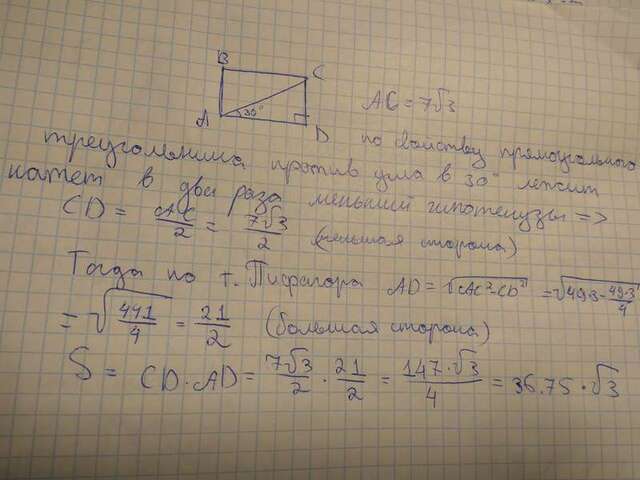 B
C
A
30°
D
AC = 7√3
по свойству прямоугольного
треугольника против угла в 30° лежит
катет в два раза меньший гипотенузы =>
CD = AC/2 = 7√3/2 (меньшая сторона)
Тогда по т. Пифагора AD = √(AC²-CD²) = √(49·3 - 49·3/4)
= √(441/4) = 21/2 (большая сторона)
S = CD·AD = 7√3/2 · 21/2 = 147·√3/4 = 36.75·√3